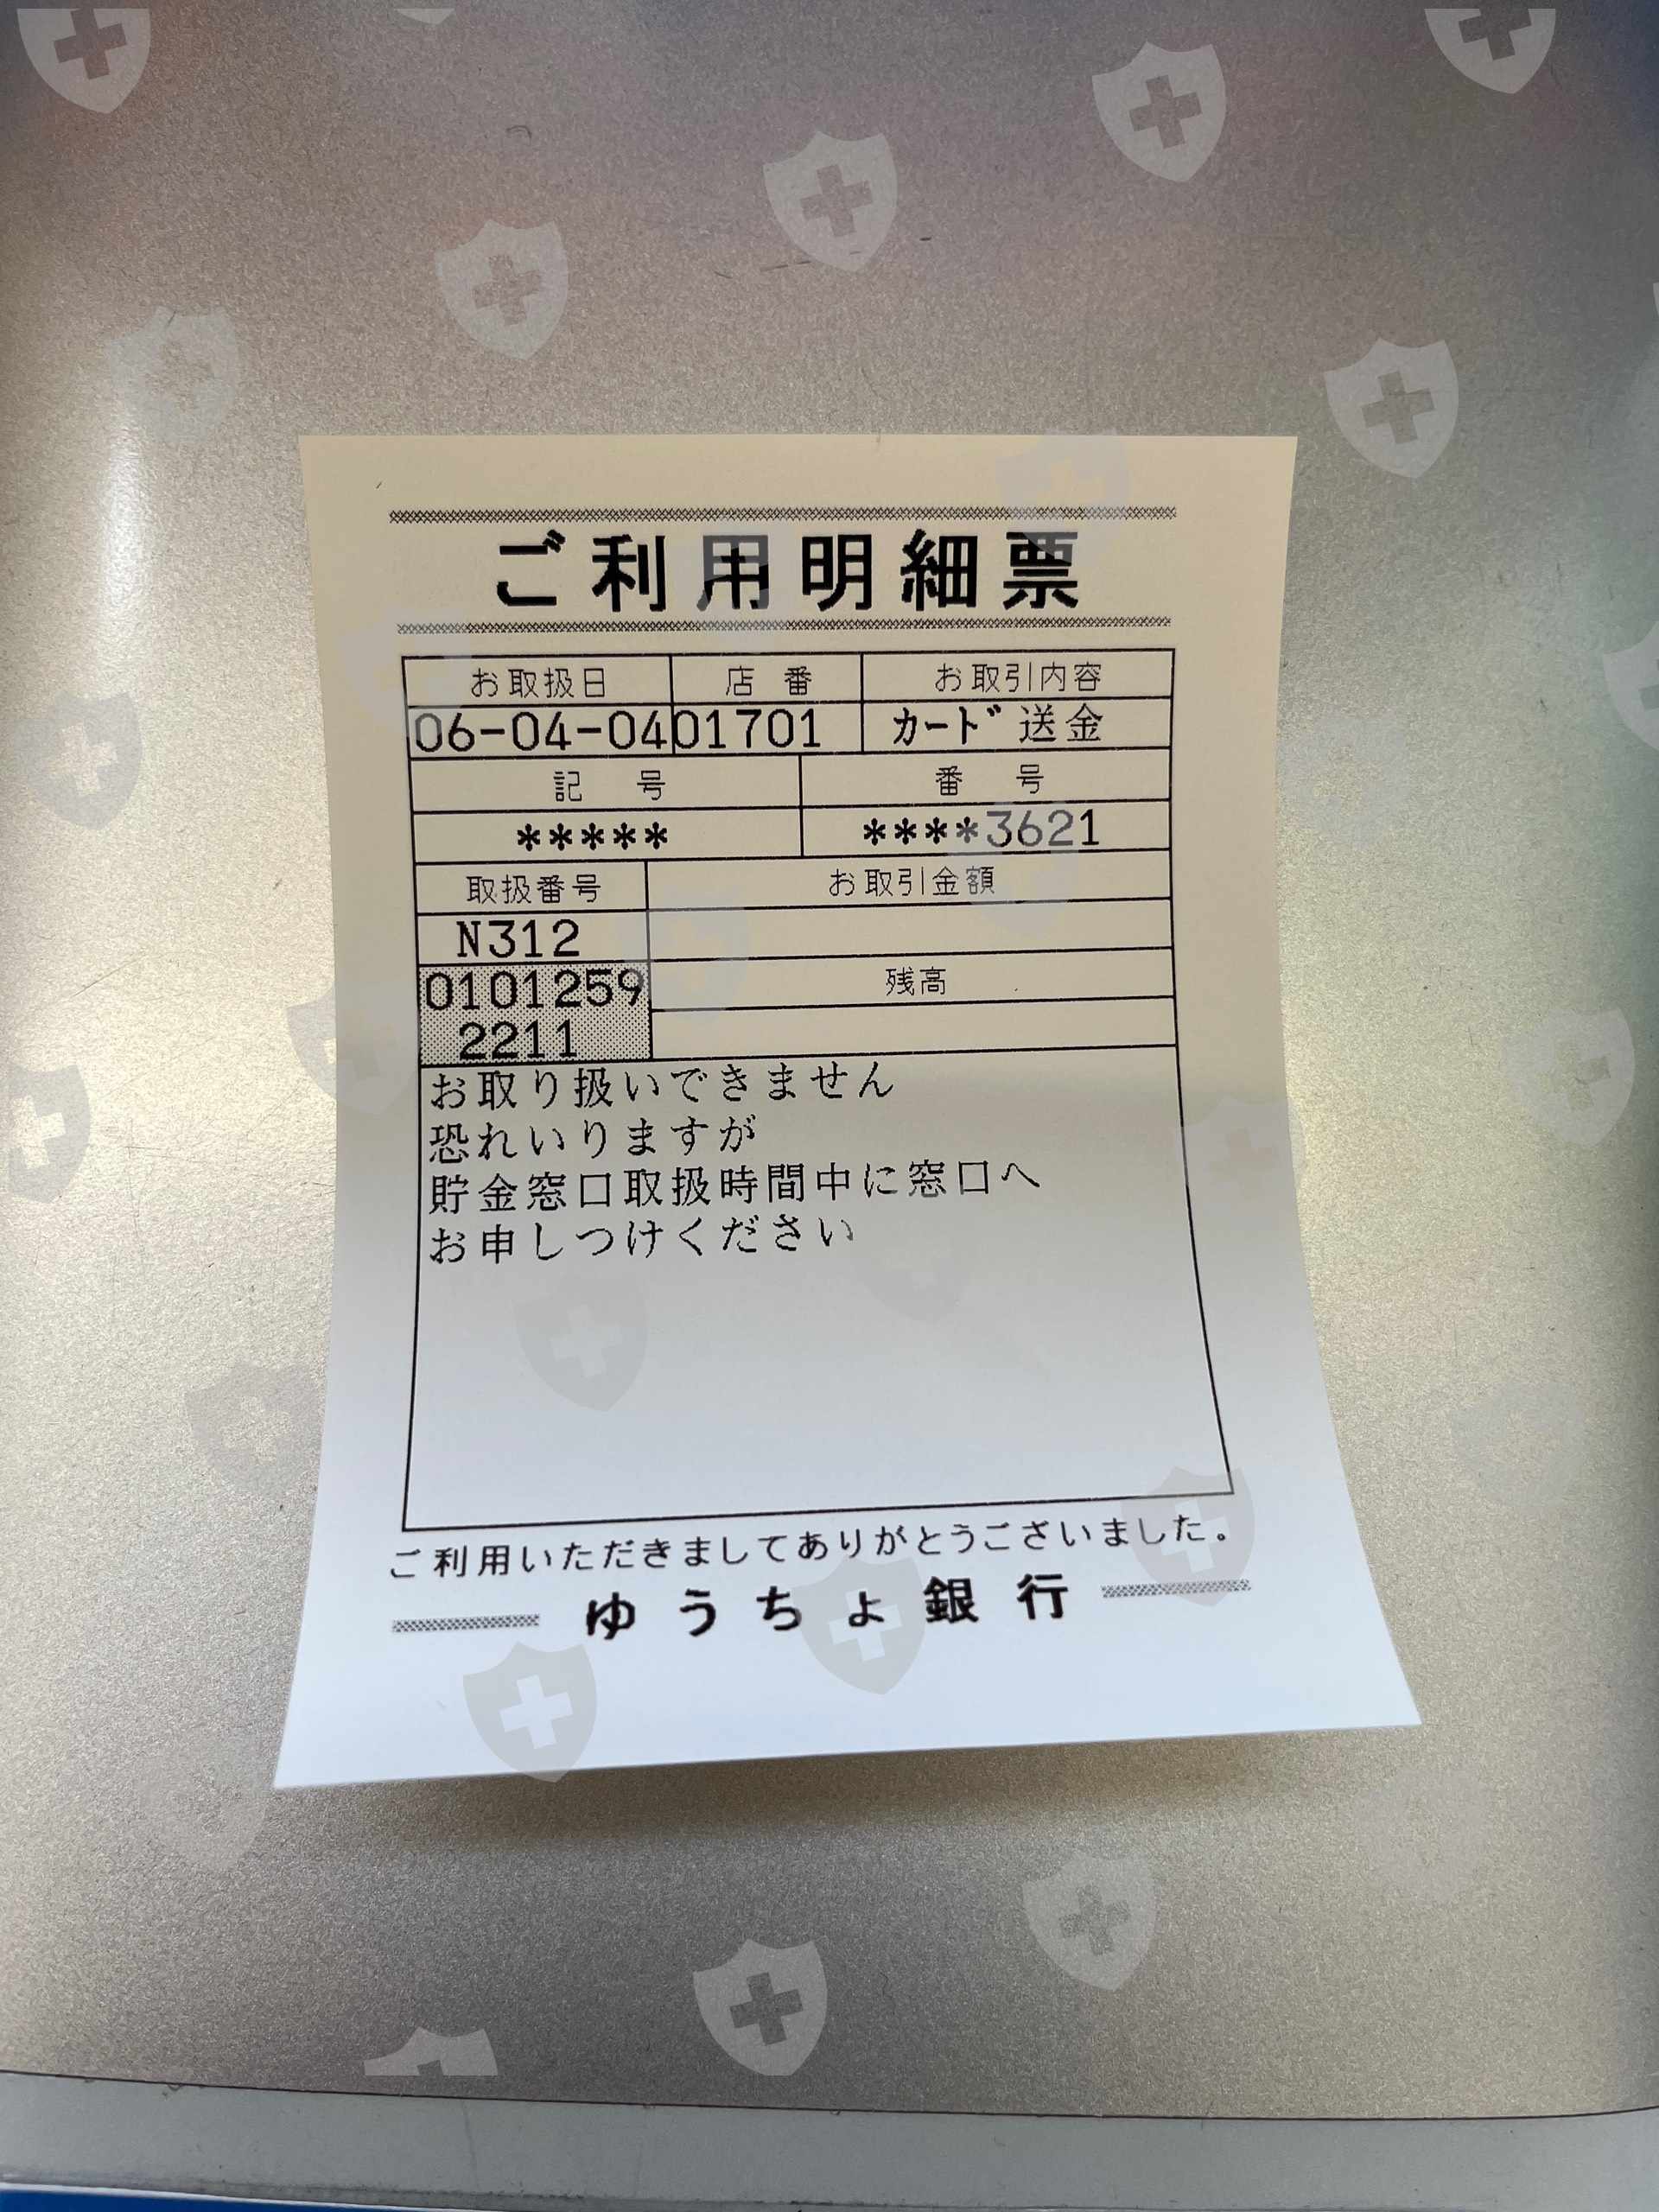 ご利用明細票
お取扱日 店番 お取引内容
06-04-04 01701 カード送金
記号 番号
***** ****3621
取扱番号 お取引金額
N312
0101259 残高
2211
お取り扱いできません
恐れいりますが
貯金窓口取扱時間中に窓口へ
お申しつけください
ご利用いただきましてありがとうございました。
ゆうちょ銀行